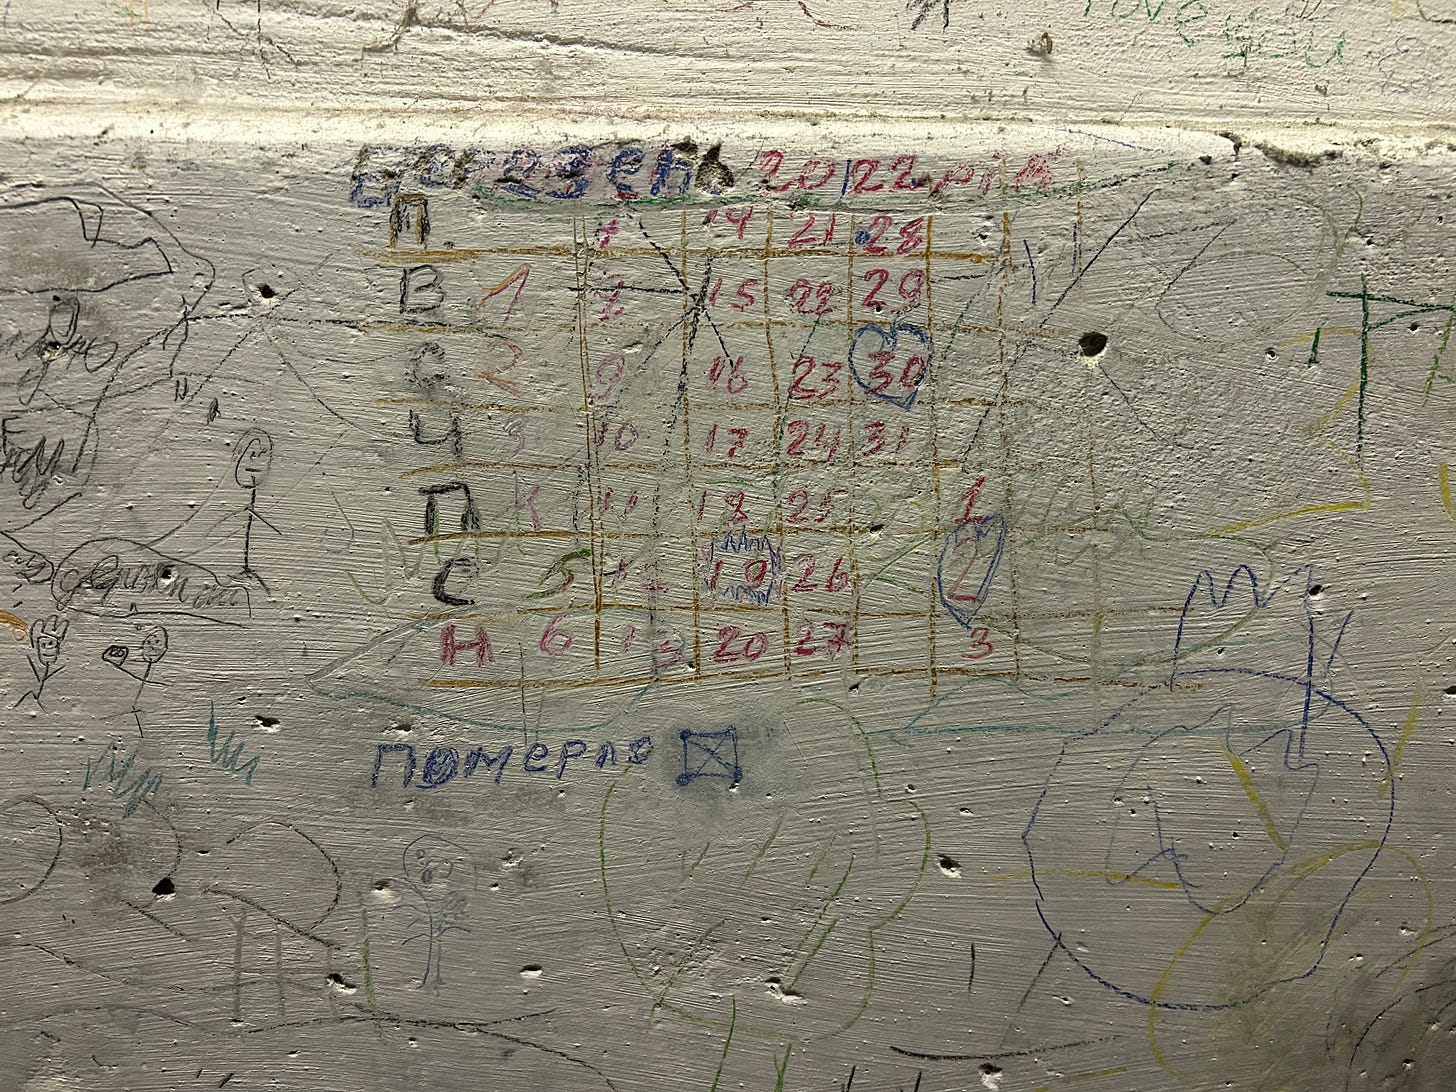 love
you
березень 2022 рік
П 7 14 21 28
В 1 8 15 22 29
С 2 9 16 23 30
Ч 3 10 17 24 31
П 4 11 18 25 1
С 5 12 19 26 2
Н 6 13 20 27 3
померло